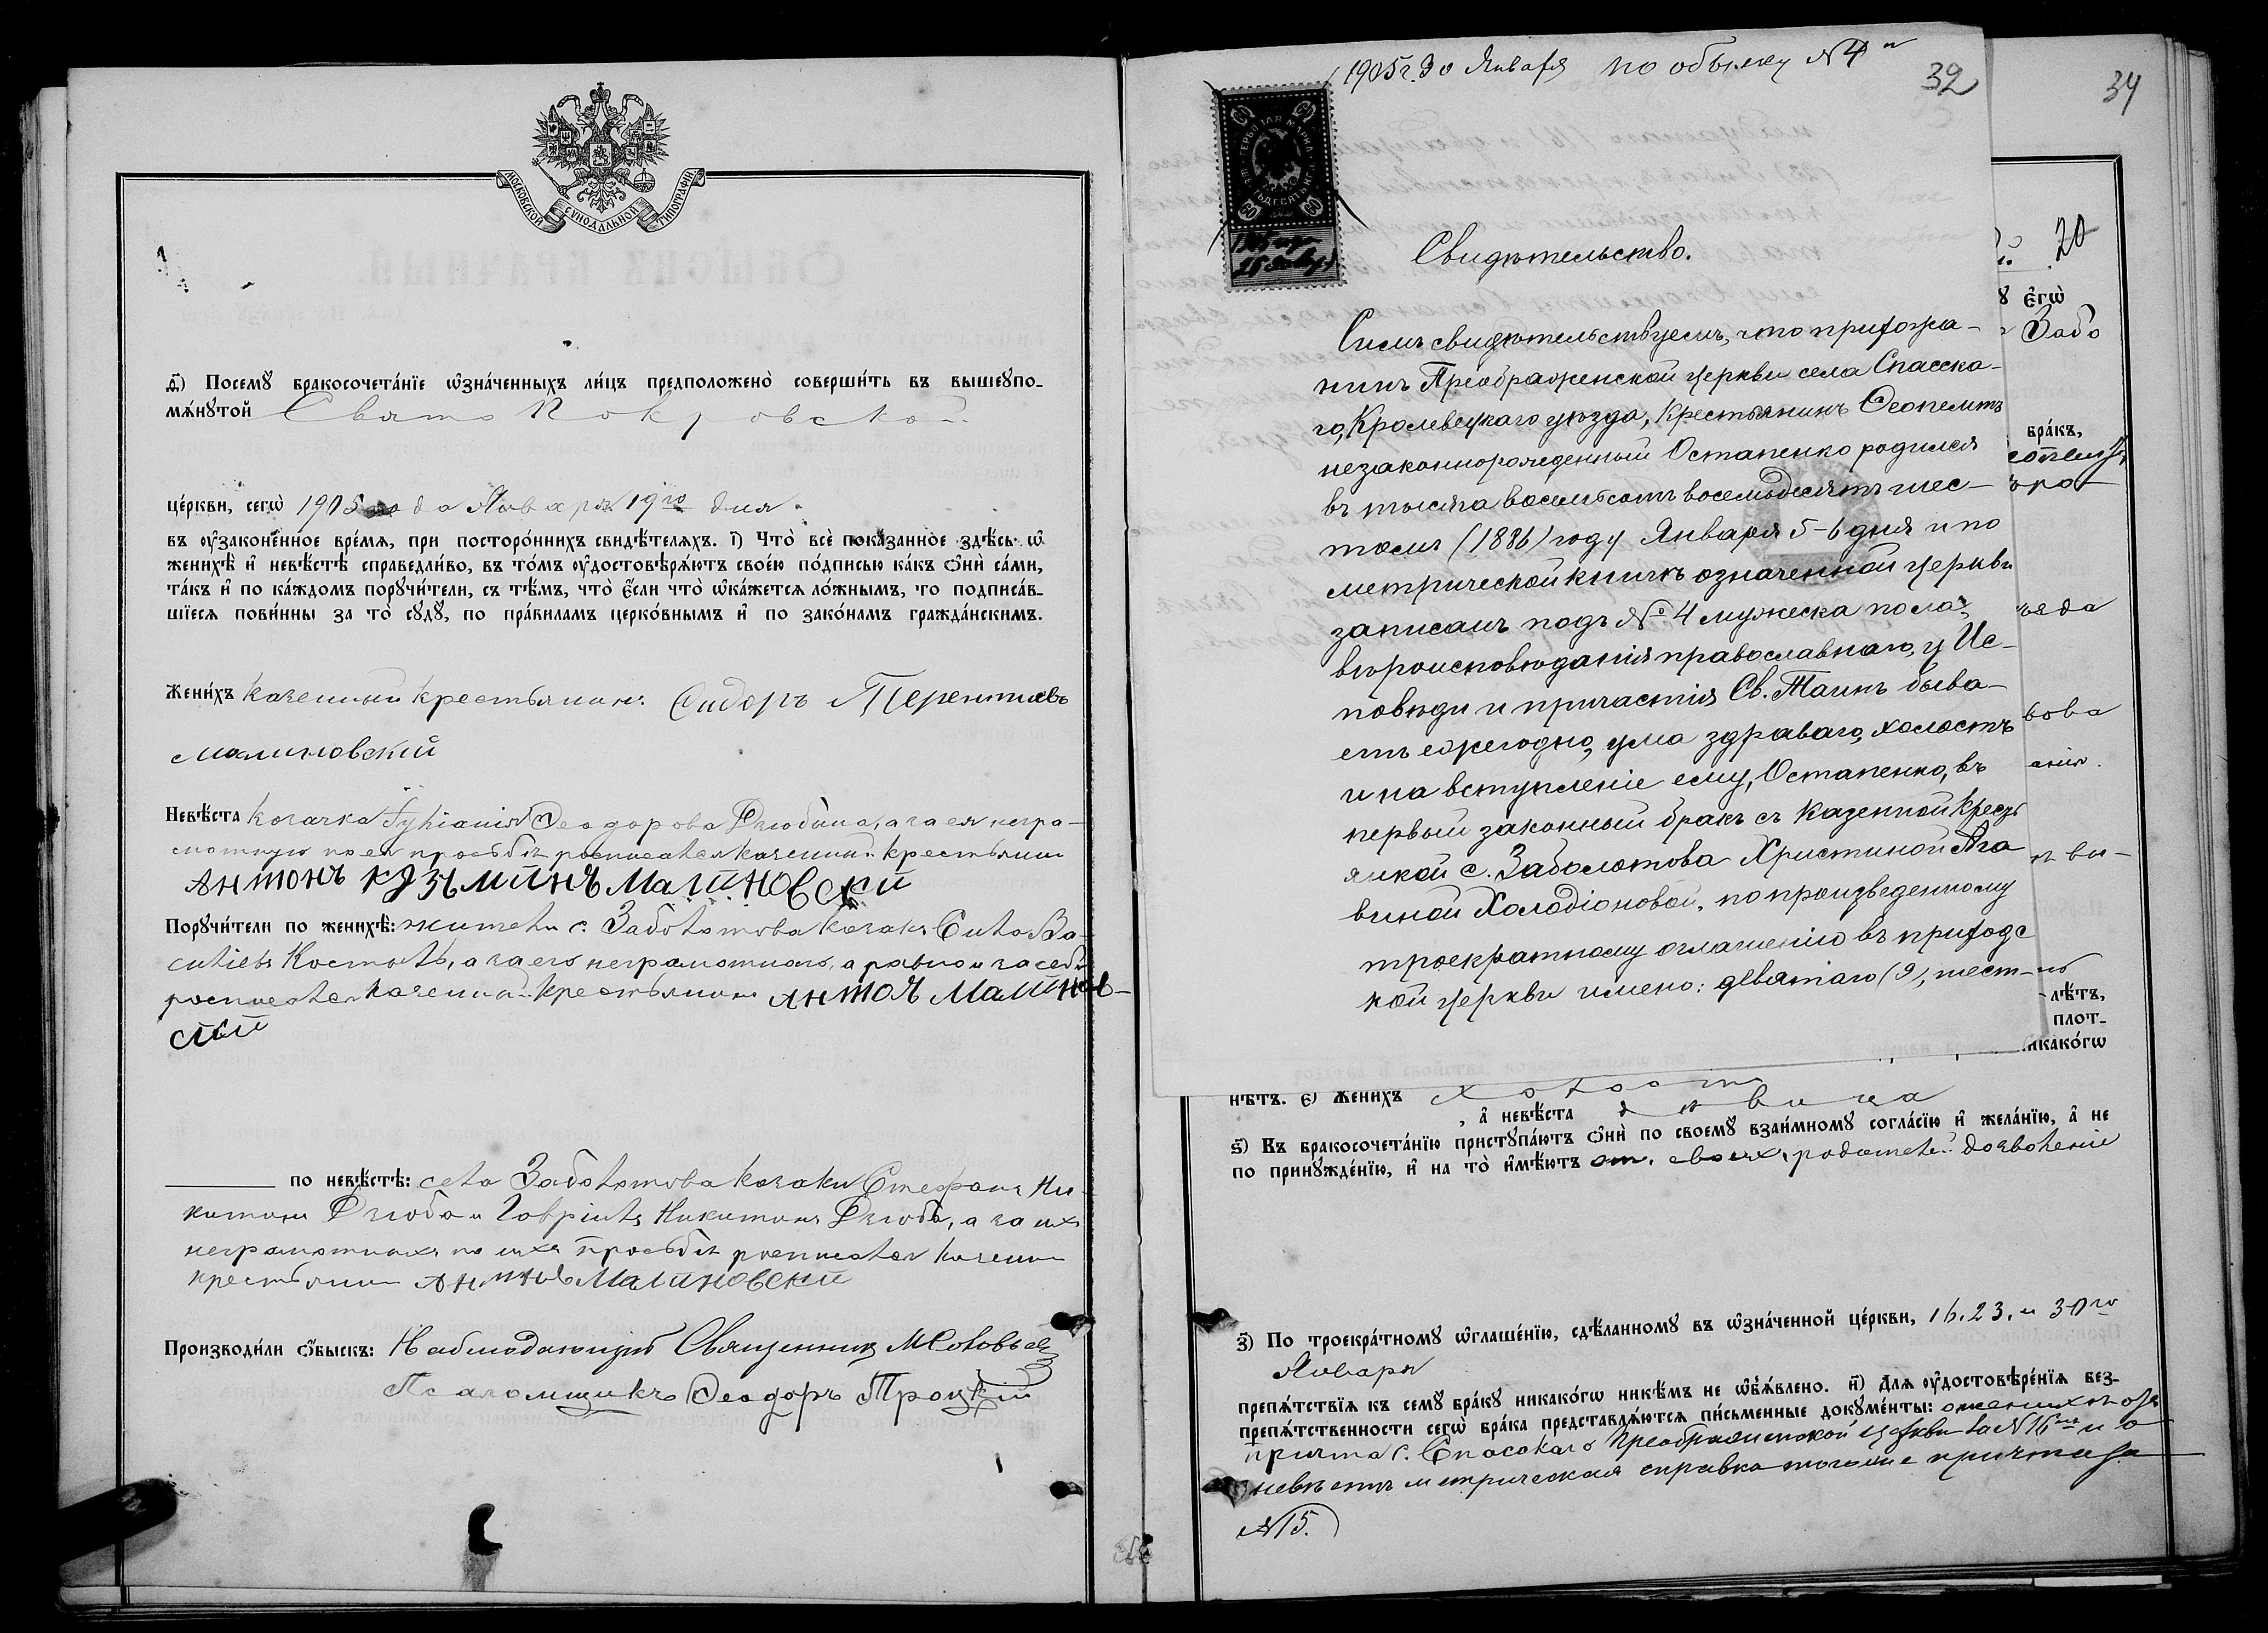 МОСКОВСКОЙ СѴНОДАЛЬНОЙ ТИПОГРАФІИ
д҃і) Посемꙋ бракосочета́нїе ѡ҆зна́ченныхъ ли́цъ предположено̀ соверши́ть въ вышеꙋпо-
мѧ́нꙋтой Свято Покровской
це́ркви, сегѡ̀ 1905 года Января 19го дня.
въ ᲂу҆зако́ненное вре́мѧ, при посторо́ннихъ свидѣ́телѧхъ. і҃) Что̀ всѐ пока́занное здѣ́сь ѡ҆
женихѣ̀ и҆ невѣ́стѣ справедли́во, въ то́мъ ᲂу҆достовѣрѧ́ютъ свое́ю по́дписью ка́къ ѻ҆нѝ са́ми,
та́къ и҆ по ка́ждомъ порꙋчи́тели, съ тѣ́мъ, что̀ є҆́сли что̀ ѡ҆ка́жетсѧ ло́жнымъ, то подписа́в-
шїесѧ пови́нны за то̀ сꙋдꙋ̀, по пра́виламъ церко́внымъ и҆ по зако́намъ гражда́нскимъ.
Жени́хъ казенный крестьянинъ Сидоръ Терентіевъ
Малиновскій
Невѣ́ста козачка Іуліанія Ѳеодорова Дзюбина, а за ея негра-
мотную по ея просьбѣ росписался казенный крестьянин
Антонъ Кузьминъ Малиновский
Порꙋчи́тели по женихѣ̀: жители с. Заболотова козакъ Сила Ва-
силіевъ Костюкъ, а за его неграмотнаго, а равно и за себя
росписался казенный крестьянинъ Антон Малинов-
ский
по невѣ́стѣ: села Заболотова козаки Стефанъ Ни-
китинъ Дзюба и Гавріилъ Никитинъ Дзюба, а за ихъ
неграмотныхъ по ихъ просьбѣ росписался казенн
крестьянин Антонъ Малиновский
Производи́ли ѻ҆́быскъ: Наблюдающій Священникъ М Соловьевъ
Псаломщикъ Ѳеодоръ Троцкій
1905 г. 30 Января по обыску № 4й
32
34
20
Свидѣтельство.
Симъ свидѣтельствуемъ, что прихожа-
нинъ Преображенской церкви села Спасска-
го, Кролевецкаго уѣзда, крестьянинъ Ѳеопемптъ
незаконнорожденный Остапенко родился
въ тысяча восемьсотъ восемьдесятъ шес-
томъ (1886) году Января 5-6 дня и по
метрической книгѣ означенной церкви
записанъ подъ № 4 мужеска пола,
вѣроисповѣданія православнаго, у Ис-
повѣди и причастія Св. Таинъ быва-
етъ ежегодно, ума здраваго, холостъ
и на вступленіе ему, Остапенко, въ
первый законный бракъ съ казенной крест
янкой с. Заболотова Христиной Ага
виной Холодіоновой, по произведенному
троекратному оглашенію въ приходс
кой церкви имено: девятаго (9), шест-
є҆гѡ̀
Забо
бра́къ,
лѣ́тъ,
плот-
ника́кого
нѣ́тъ. є҃) Жени́хъ холостъ
, а҆ невѣ́ста дѣвица
ѕ҃) Къ бракосочета́нїю пристꙋпа́ютъ ѻ҆нѝ по своемꙋ̀ взаи́мномꙋ согла́сїю и҆ жела́нїю, а҆ не
по принꙋжде́нїю, и҆ на то̀ и҆мѣ́ютъ от своихъ родителей дозволеніе
з҃) По троекра́тномꙋ ѡ҆глаше́нїю, сдѣ́ланномꙋ въ ѡ҆зна́ченной це́ркви, 16. 23. и 30го
Января
препѧ́тствїѧ къ семꙋ̀ бра́кꙋ никако́гѡ никѣ́мъ не ѡ҆б̾ѧ́влено. и҃) Длѧ ᲂу҆достовѣре́нїѧ без-
препѧ́тственности сегѡ̀ бра́ка представлѧ́ютсѧ пи́сьменные докꙋме́нты: о женихѣ отъ
причта с. Спасскаго Преображенской церкви за № 16мъ и о
невѣстѣ метрическая справка тогоже причта за
№ 15.